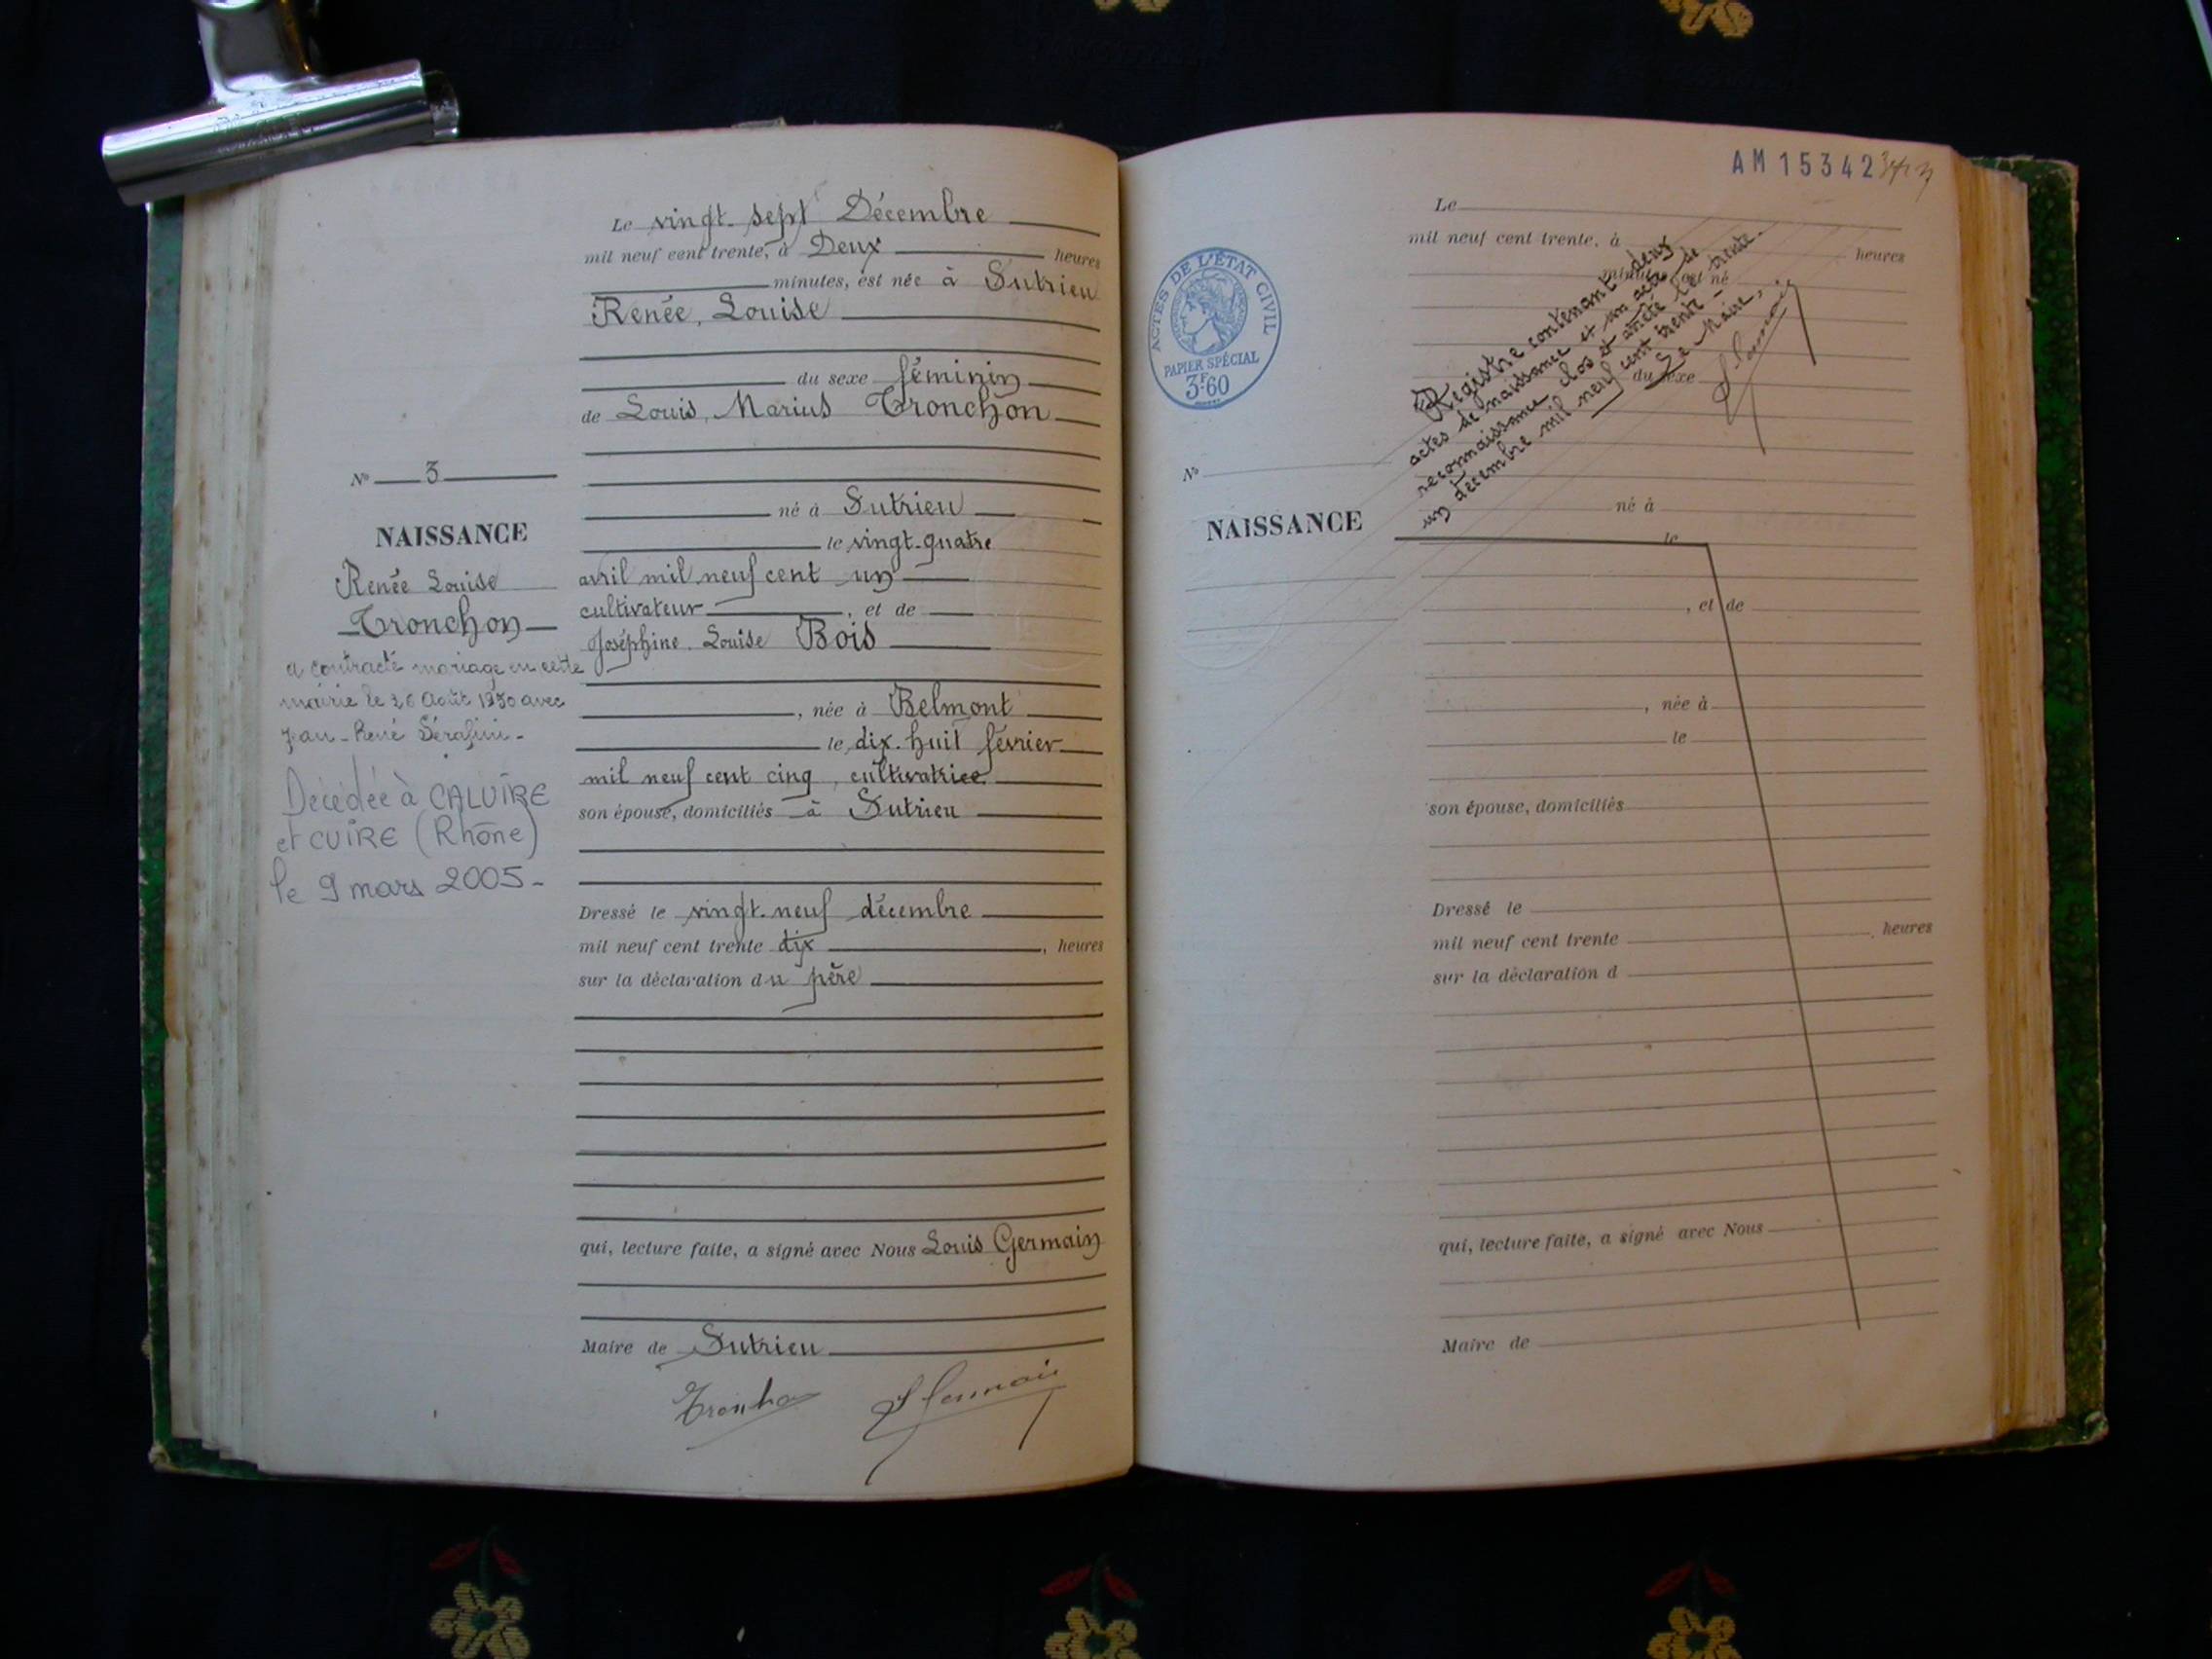 Le vingt-sept Décembre
mil neuf cent trente, à Deux heures
minutes, est née à Sutrieu
Renée, Louise
du sexe féminin
de Louis, Marius Tronchon
né à Sutrieu
le vingt-quatre
avril mil neuf cent un
cultivateur, et de
Joséphine. Louise Bois
, née à Belmont
le dix-huit février
mil neuf cent cinq, cultivatrice
son épouse, domiciliés à Sutrieu
Dressé le vingt-neuf décembre
mil neuf cent trente dix, heures
sur la déclaration du père
qui, lecture faite, a signé avec Nous Louis Germain
Maire de Sutrieu
Tronchon
L Germain
No 3
NAISSANCE
Renée Louise
Tronchon
a contracté mariage en cette
mairie le 26 Août 1950 avec
Jean-René Sérafini-
Décédée à CALUIRE
et CUIRE (Rhône)
le 9 mars 2005-
AM 15342
ACTES DE L'ÉTAT CIVIL
PAPIER SPÉCIAL
3F.60
Le
mil neuf cent trente, à heures
minutes, est né
du sexe
Registre contenant deux
actes de naissance et un acte de
reconnaissance clos et arrêté le trente-
un décembre mil neuf cent trente-
Le Maire,
L Germain
No
NAISSANCE
né à
le
, et de
, née à
le
son épouse, domiciliés
Dressé le
mil neuf cent trente heures
sur la déclaration d
qui, lecture faite, a signé avec Nous
Maire de